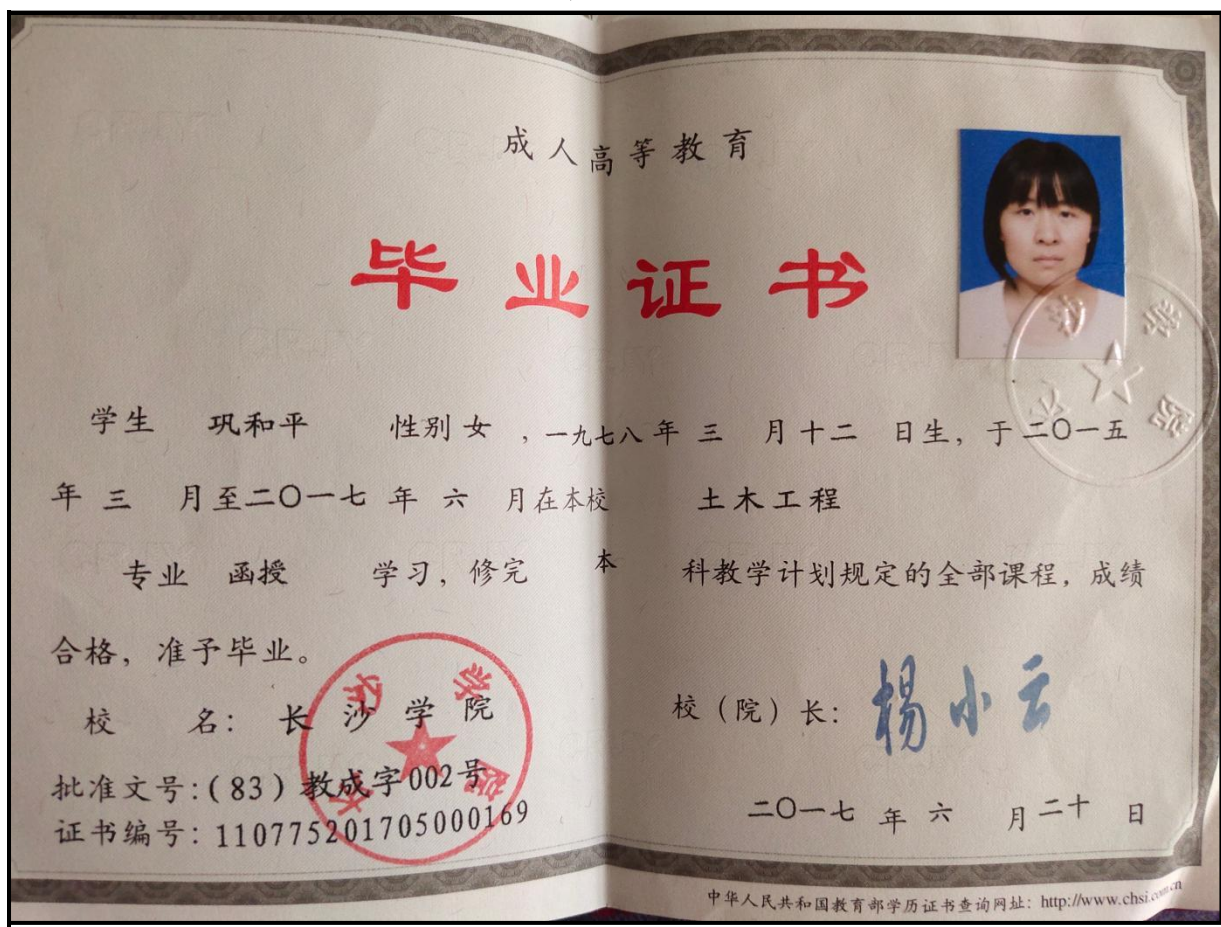 成人高等教育
毕业证书
学生 巩和平 性别 女 ，一九七八 年 三 月 十二 日生，于 二〇一五
年 三 月至 二〇一七 年 六 月在本校 土木工程
专业 函授 学习，修完 本 科教学计划规定的全部课程，成绩
合格，准予毕业。
校 名：长沙学院
校（院）长：杨小云
批准文号：(83)教成字002号
证书编号：110775201705000169
二〇一七 年 六 月 二十 日
中华人民共和国教育部学历证书查询网址：http://www.chsi.com.cn
长沙学院
长沙学院